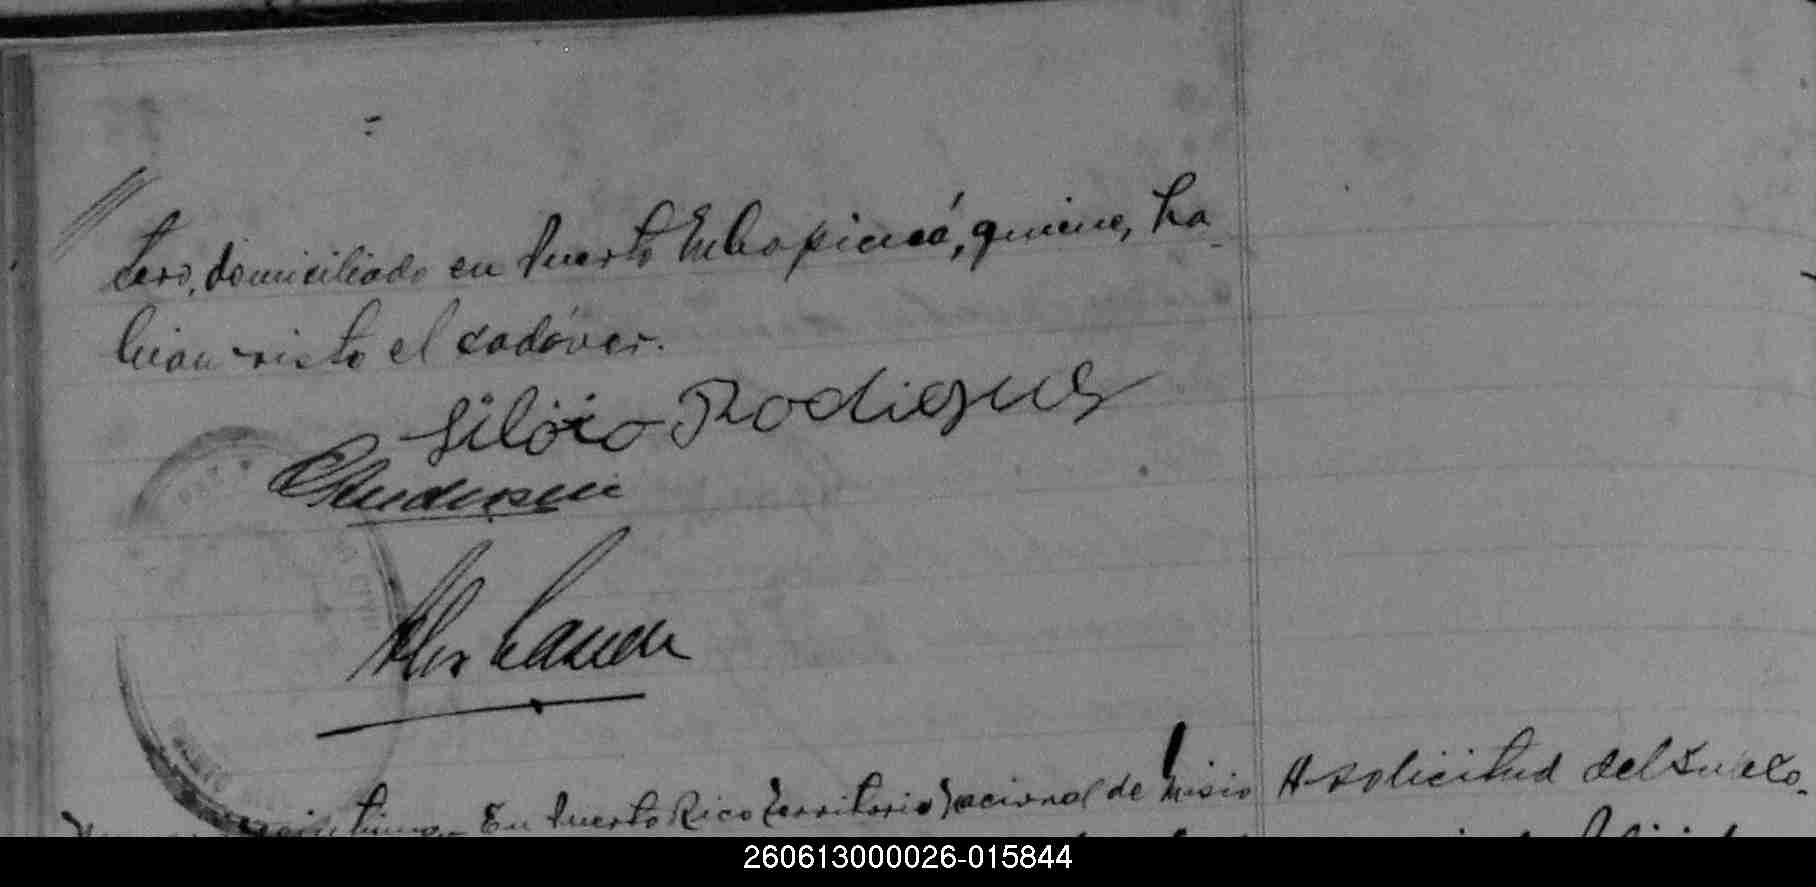 tero, domiciliado en Puerto Mbopicuá, quienes ha-
bian visto el cadáver.
Silbcio Rodigues
CAndersen
Alex
En Puerto Rico Territorio Nacional de Misio
A solicitud del Sub Co-
260613000026-015844